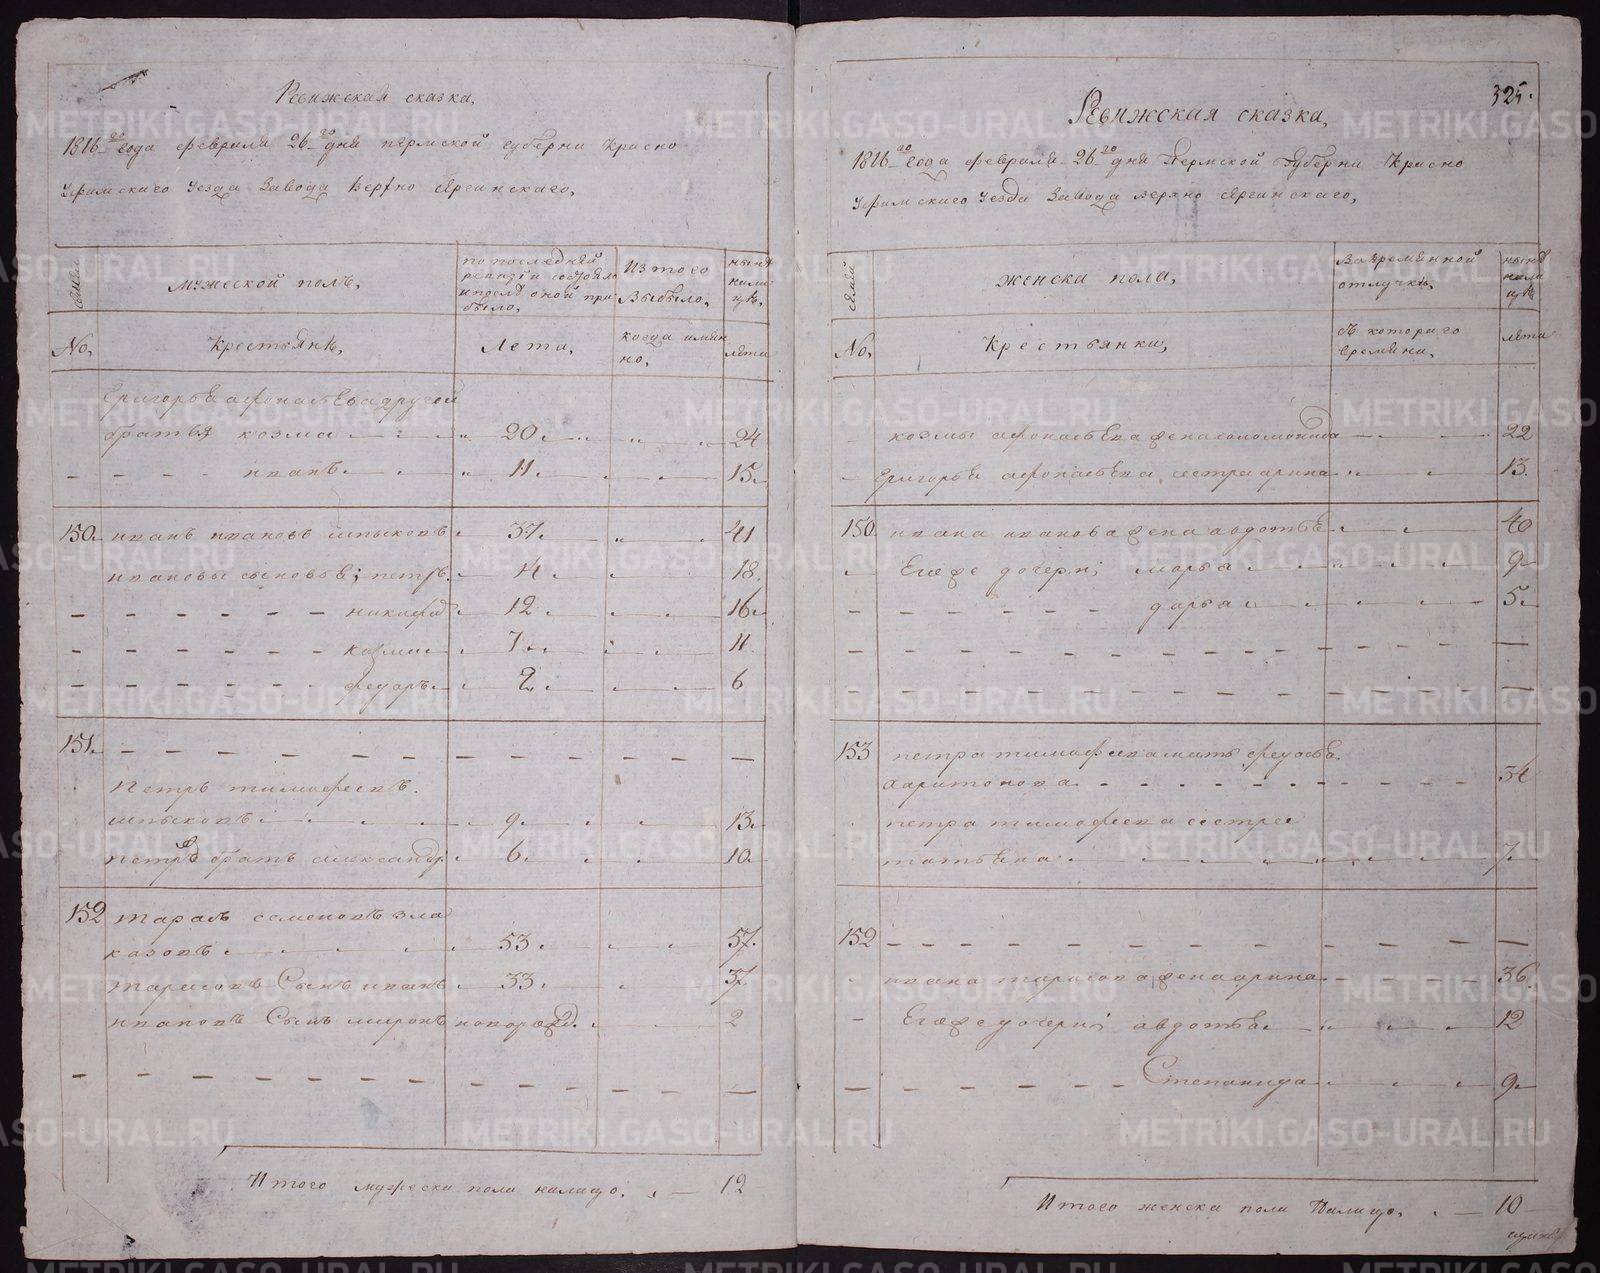 Ревижская сказка,
1816 го года февраля 26 го дня пермской губерни Красно
уфимскаго уезда Завода верхно сергинскаго,
семьи
мужеской полъ,
по последней
ревизiи состояло
и после оной при
было,
Из того
Выбыло,
ныне
нали
цѣ,
No,
Крестьянѣ,
Лета,
когда имян
но,
лѣта
Григорья афонасьева другой
братья козма 20 24
иванъ 11 15
150 иванъ ивановъ шпыковъ 37 41
ивановы сыновья; петръ 14 18
никифор 12 16
козма 7 11
федоръ 2 6
151
Петръ тимофеевъ
шпыковъ 9 13
петра братъ александр 6 10
152 тарасъ семеновъ зла
казовъ 53 57
тарасовъ Сынъ иванъ 33 37
ивановъ Сынъ миронъ новорожд. 2
Итого мужеска пола налицо, 12
325.
Ревижская сказка,
1816 го года февраля 26 го дня Пермской Губерни Красно
уфимскаго уезда Завода верхно сергинскаго,
семьи
женска пола,
Вовремянной
отлучкѣ,
ныне
нали
цѣ
No,
Крестьянки,
съ котораго
времяни,
лѣта
козмы афонасьева жена соломонида 22
Григорья афонасьева сестра арина 13
150 ивана иванова жена авдотья 40
Егоже дочери марья 9
дарья 5
153 петра тимофеева мать федосья
Харитонова 34
петра тимофеева сестра
татьяна 7
152
ивана тарасова жена арина 36
Егоже дочери авдотья 12
Степанида 9
Итого женска пола Налицо, 10